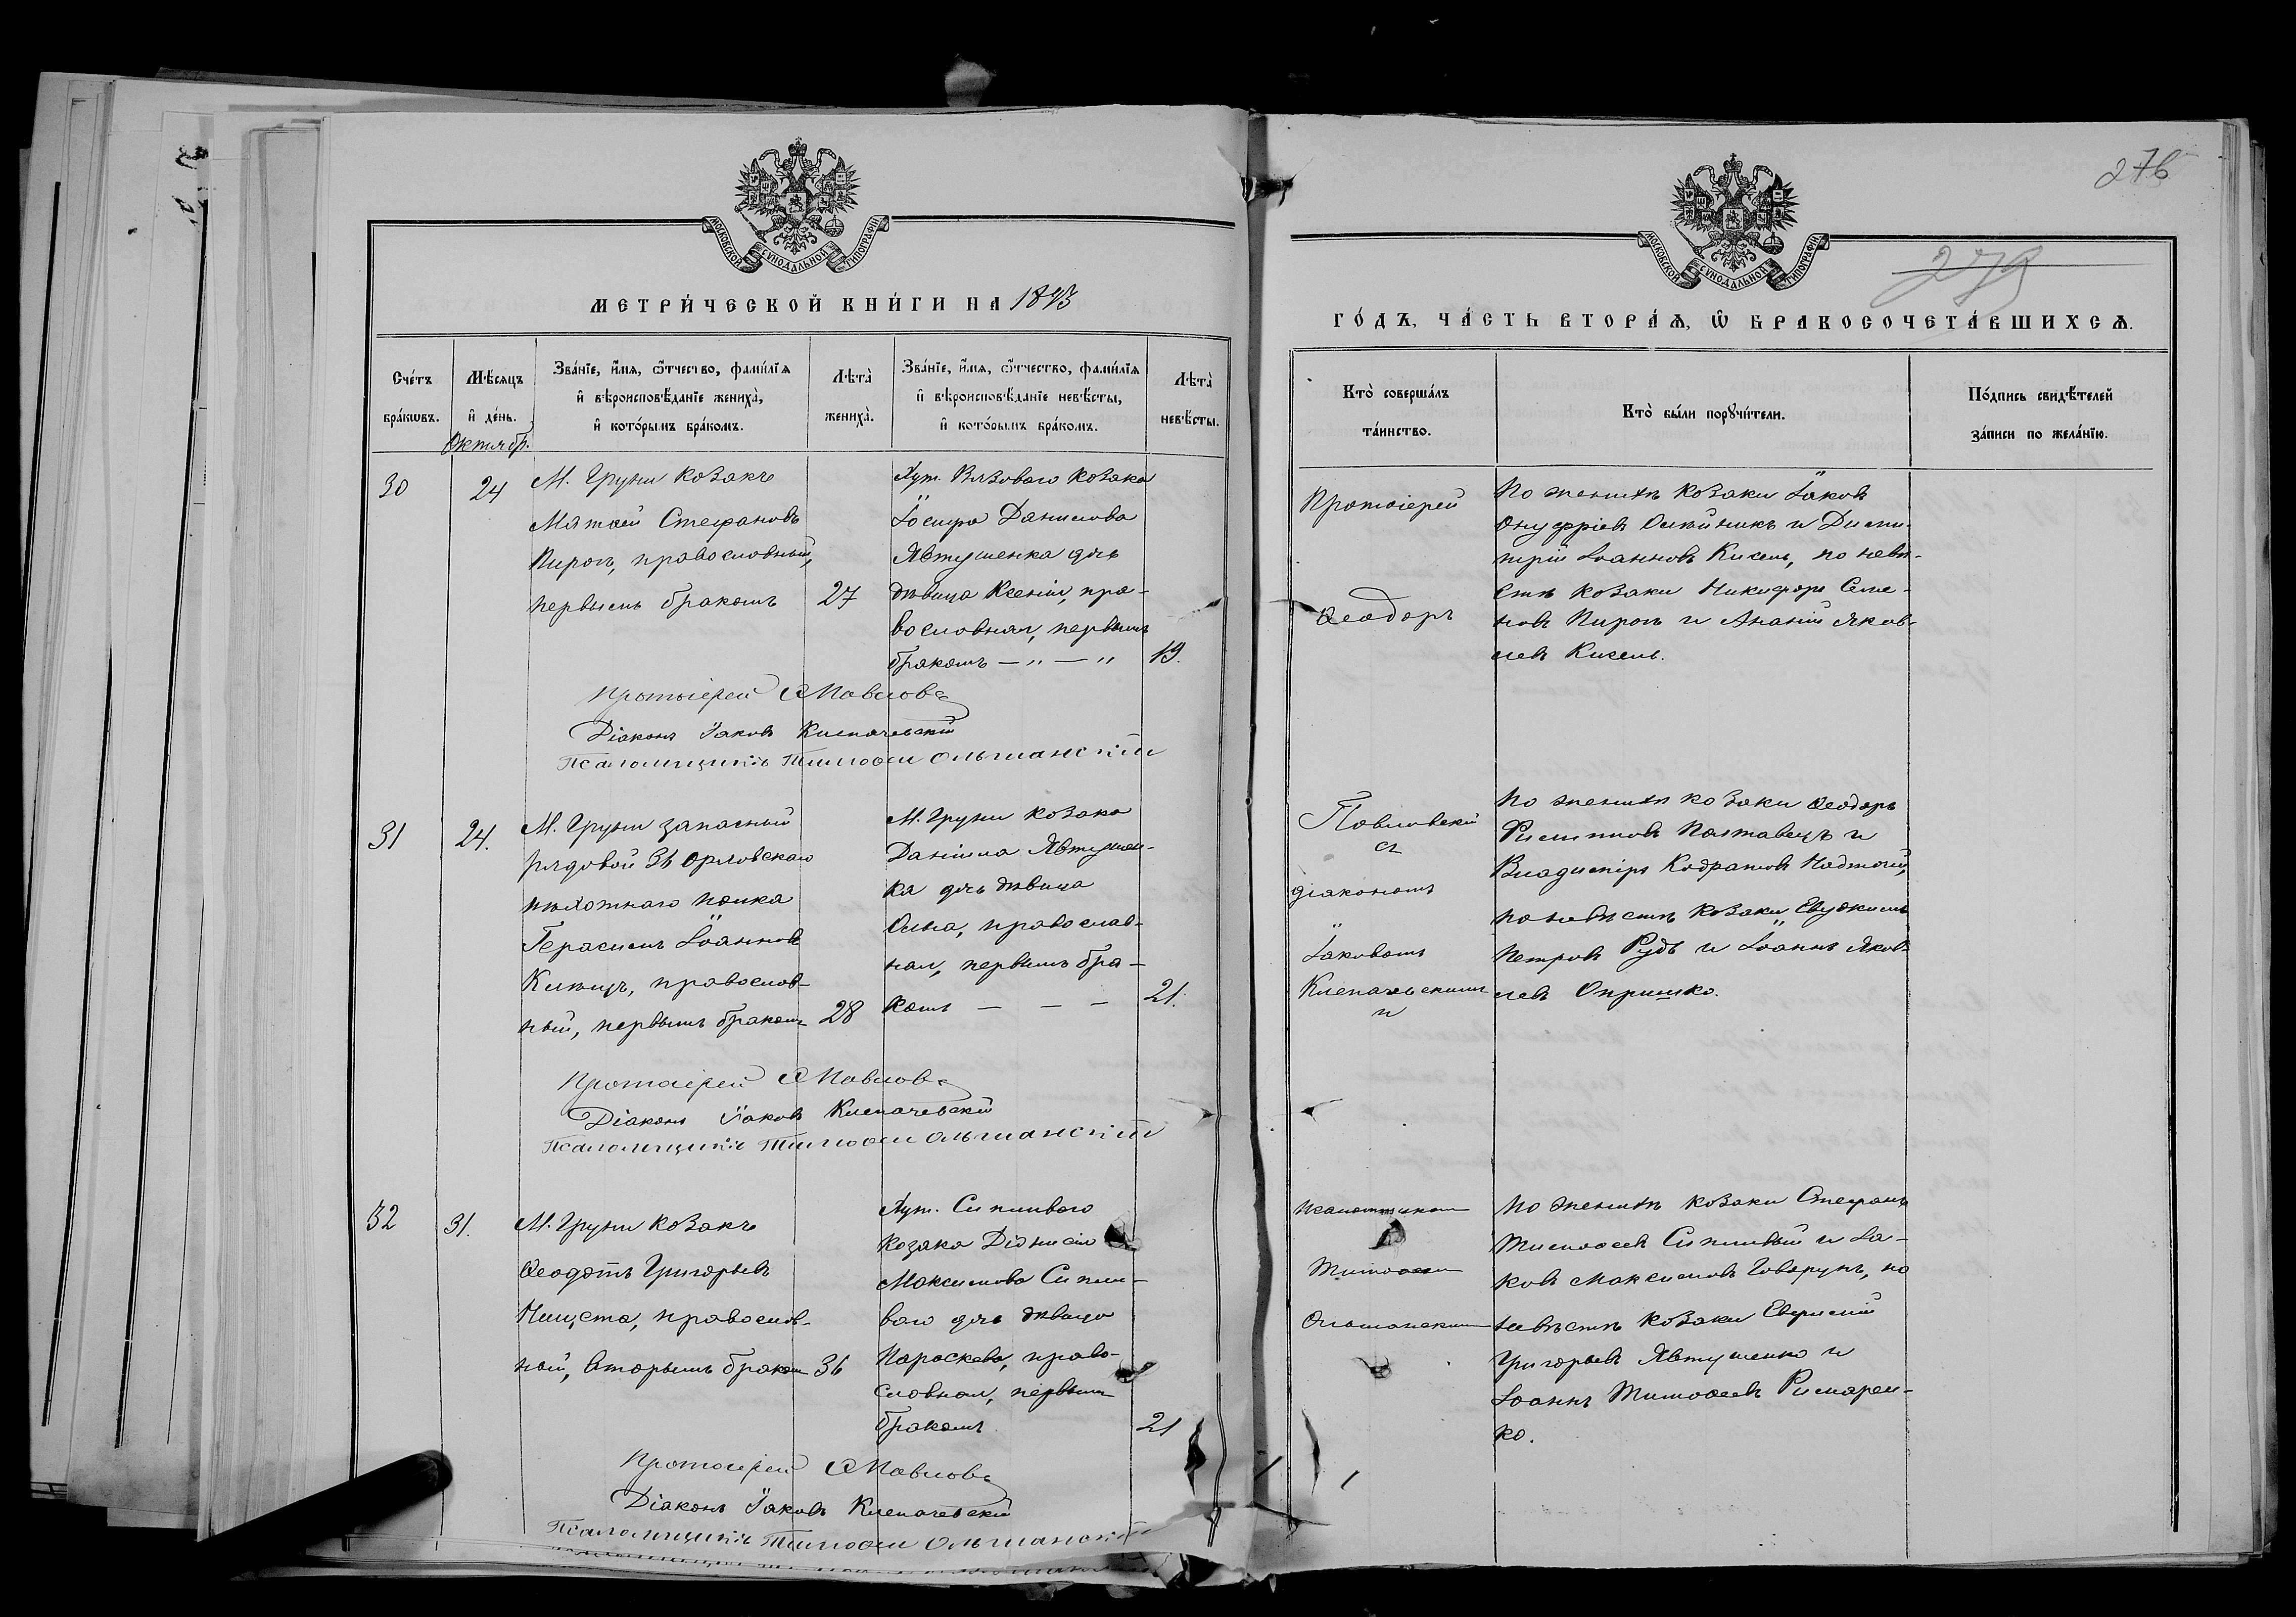 МОСКОВСКОЙ СУНОДАЛЬНОЙ ТИПОГРАФІИ
МЕТРИ́ЧЕСКОЙ КНИ́ГИ НА 1893
Сче́тъ бра́кѡвъ.
Мѣ́сяцъ и҆ де́нь.
Зва́нїе, и҆́мѧ, ѻ҆́тчество, фами́лїѧ и҆ вѣроисповѣ́данїе жениха̀, и҆ кото́рымъ бра́комъ.
Лѣта̀ жениха̀.
Зва́нїе, и҆́мѧ, ѻ҆́тчество, фами́лїѧ и҆ вѣроисповѣ́данїе невѣ́сты, и҆ кото́рымъ бра́комъ.
Лѣта̀ невѣ́сты.
Октябр.
30
24
М. Груни козакъ
Матѳей Стефановъ
Пирогъ, православный,
первымъ бракомъ
27
Хут. Вязоваго козака
Іосифа Данилова
Явтушенка дочь
дѣвица Ксенія, пра-
вославная, первымъ
бракомъ — „ — „
19.
Протоіерей Ѳ Павловс
Діаконъ Іаковъ Клепачевскій
Псаломщикъ Тимоѳей Ольшанскій
31
24.
М. Груни запасный
рядовой 36 Орловскаго
пѣхотнаго полка
Герасимъ Іоанновъ
православ-
ный, первымъ бракомъ
28
М. Груни козака
Даніила Явтушен-
ка дочь дѣвица
Ольга, православ-
ная, первымъ бра-
комъ — — —
21.
Протоіерей Ѳ Павловс
Діаконъ Іаковъ Клепачевскій
Псаломщикъ Тимоѳей Ольшанскій
32
31.
М. Груни козакъ
Ѳеодотъ Григорьевъ
православ-
ный, вторымъ бракомъ
36
Хут. Сипливаго
козака Діонисія
Максимова Сипли-
ваго дочь дѣвица
Параскева, право-
славная, первымъ
бракомъ
21
Протоіерей Ѳ Павловс
Діаконъ Іаковъ Клепачевскій
Псаломщикъ Тимоѳей Ольшанскій
276
279
МОСКОВСКОЙ СУНОДАЛЬНОЙ ТИПОГРАФІИ
ГО́ДЪ, ЧА́СТЬ ВТОРА́Ѧ, Ѡ҆ БРАКОСОЧЕТА́ВШИХСѦ.
Кто̀ соверша́лъ та́инство.
Кто̀ бы́ли порꙋчи́тели.
По́дпись свидѣ́телей за́писи по жела́нїю.
Протоіерей
Ѳеодоръ
Павловскій
съ
діакономъ
Іаковомъ
Клепачевскимъ
и
псаломщикомъ
Тимоѳеемъ
Ольшанскимъ
По женихѣ козаки Іаковъ
Онуфріевъ Олѣйникъ и Дими-
трій Іоанновъ Кисель, по невѣ-
стѣ козаки Никифоръ Семе-
новъ Пирогъ и Ананій Яков-
левъ Кисель.
По женихѣ козаки Ѳеодоръ
Филипповъ Полтавецъ и
Владиміръ Кодратовъ Надточій,
по невѣстѣ козаки, Евдокимъ
Петровъ Рудь и Іоаннъ Яков-
левъ Опришко.
По женихѣ козаки Стефанъ
Тимоѳеевъ Сипливый и Іа-
ковъ Максимовъ Говорунъ, по
невѣстѣ козаки Евфимій
Григорьевъ Явтушенко и
Іоаннъ Тимоѳеевъ Римарен-
ко.